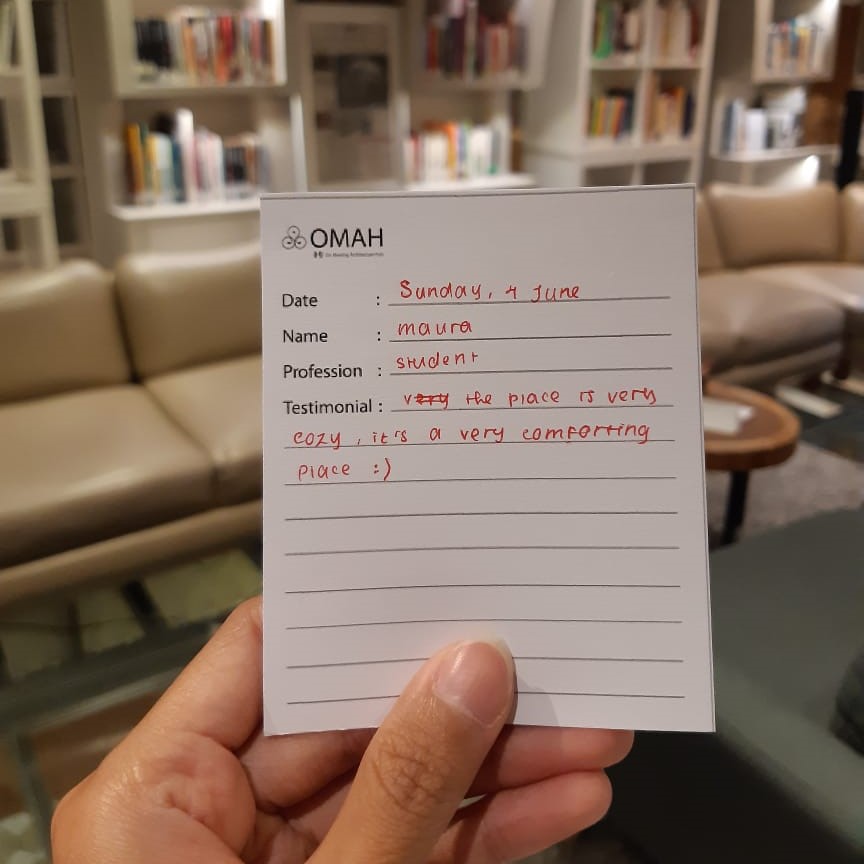 OMAH
Date : Sunday, 4 June
Name : maura
Profession : student
Testimonial : very the place is very
cozy, it's a very comforting
place :)